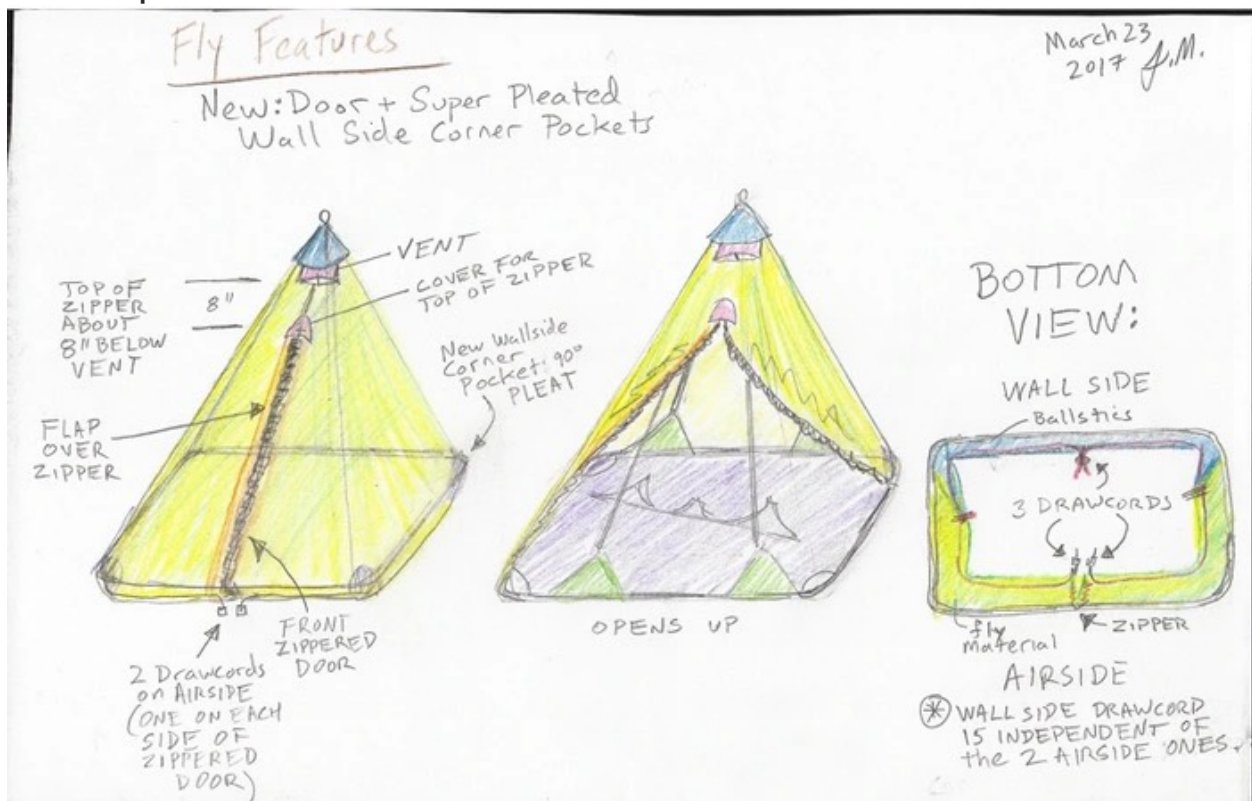 Fly Features
New: Door + Super Pleated
Wall Side Corner Pockets
March 23
2017 J.M.
TOP OF
ZIPPER
ABOUT
8" BELOW
VENT
8"
VENT
COVER FOR
TOP OF ZIPPER
New Wallside
Corner
Pocket: 90°
PLEAT
FLAP
OVER
ZIPPER
FRONT
ZIPPERED
DOOR
2 Drawcords
on AIRSIDE
(ONE ON EACH
SIDE OF
ZIPPERED
DOOR)
OPENS UP
BOTTOM
VIEW:
WALL SIDE
Ballstics
3 DRAWCORDS
fly
material
ZIPPER
AIRSIDE
* WALL SIDE DRAWCORD
IS INDEPENDENT OF
the 2 AIRSIDE ONES.